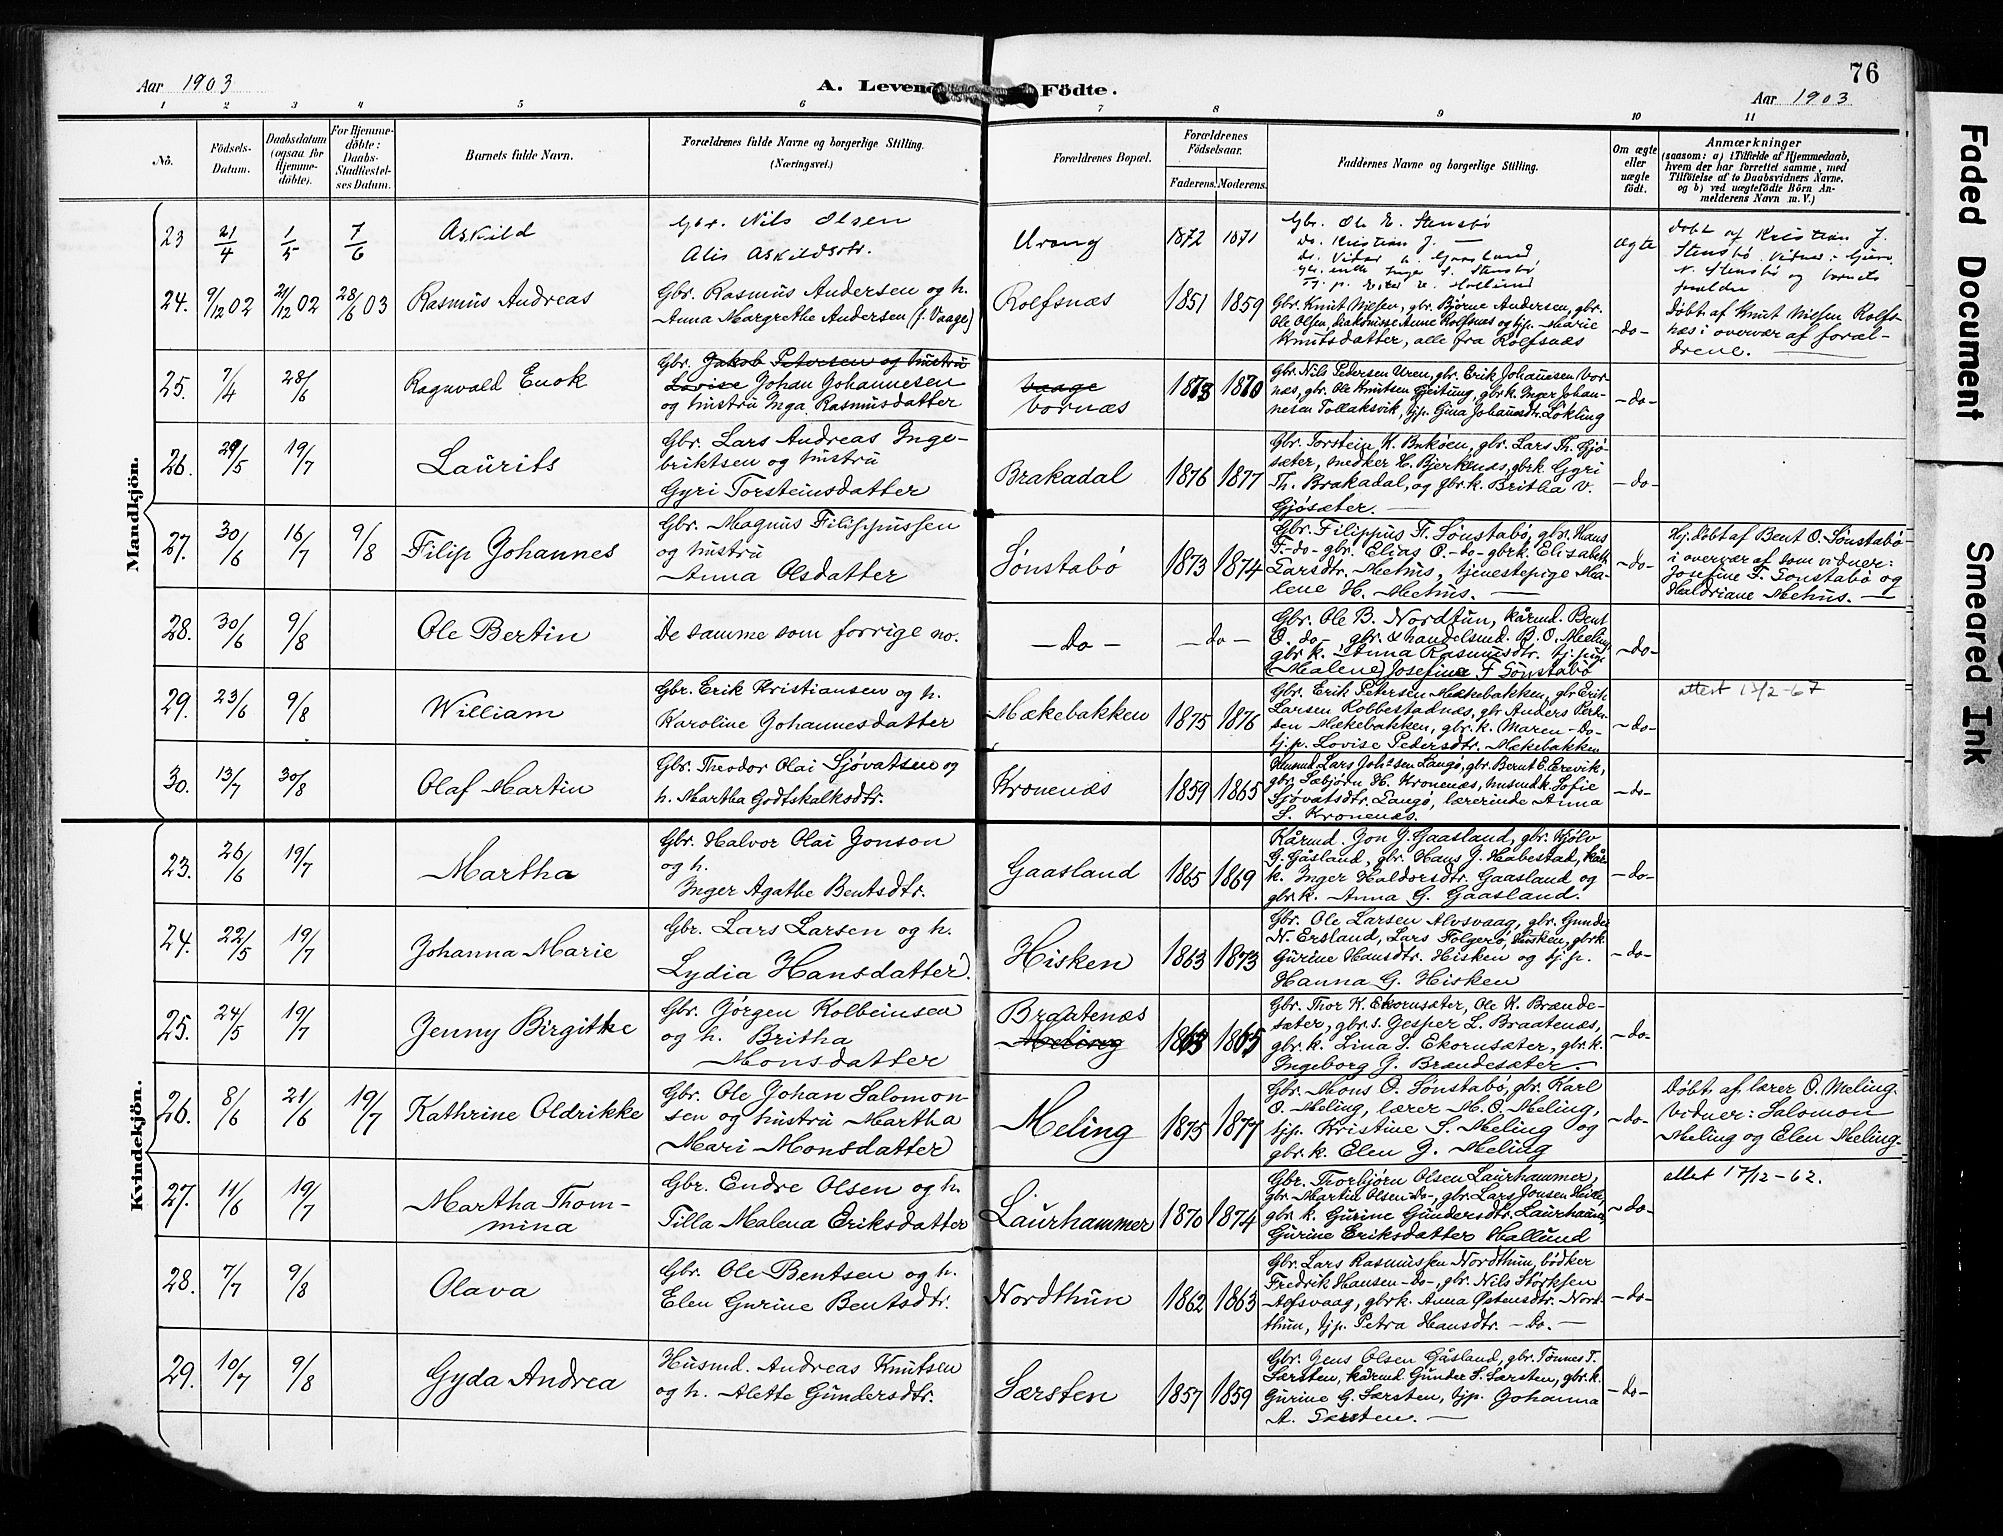 76
Aar 1903
A. Levende Födte.
Aar 1903
1 2 3 4 5 6 7 8 9 10 11
No.
Födsels-Datum.
Daabsdatum (ogsaa for Hjemme-döbte).
For Hjemme-döbte: Daabs-Stadfæstel-ses Datum.
Barnets fulde Navn.
Forældrenes fulde Navne og borgerlige Stilling.
(Næringsvei.)
Forældrenes Bopæl.
Forældrenes Födselsaar.
Faderens. Moderens.
Faddernes Navne og borgerlige Stilling.
Om ægte eller uægte födt.
Anmærkninger
(saasom: a) i Tilfælde af Hjemmedaab,
hvem der har forrettet samme, med
Tilföielse af to Daabsvidners Navne.
og b) ved uægtefödte Börn An-
melderens Navn m. V.)
Mandkjön.
23 21/4 1/5 7/6 Askild
Gbr. Nils Olsen
Alis Askildsdtr.
Urang 1872 1871
Gbr. Ole E. Stensbø
do. Kristian J. —
ægte
døbt af Kristian J.
Stensbø
24. 9/12 02 21/12 02 28/6 03 Rasmus Andreas
Gbr. Rasmus Andersen og h.
Anna Margrethe Andersen (f. Vaage)
Rolfsnæs 1851 1859
Gbr. Knut Nilsen, gbr. Bjørne Andersen, gbr.
Ole Olsen, diakonisse Anne Rolfsnæs og tjp. Marie
Knutsdatter, alle fra Rolfsnæs
-do-
Døbt af Knut Nilsen Rolfs-
næs i overvær af foræl-
drene.
25. 7/4 28/6 Ragnvald Enok
Gbr. Jakob Petersen og hustru
Lovise Johan Johannesen
og hustru Inga Rasmusdatter
Vaage
Vornæs 1873 1870
Gbr. Nils Pedersen Uren, gbr. Erik Johannesen Vor-
næs, gbr. Ole Knutsen Geitung, gbrk. Inger Johan-
nesen Tollaksvik, tjp. Gina Johansdtr.Løkling
-do-
26. 29/5 19/7 Laurits
Gbr. Lars Andreas Inge-
briktsen og hustru
Gyri Torsteinsdatter
Brakadal 1876 1877
Gbr. Torstein K. Bukøen, gbr. Lars Th. Gjø-
sæter, snedker H. Bjerknæs, gbrk. Gyri
Th. Brakadal, og gbr.k. Britha V.
Gjøsæter. —
-do-
27. 30/6 16/7 9/8 Filip Johannes
Gbr. Magnus Filippussen
og hustru
Anna Olsdatter
Sønstabø 1873 1874
Gbr. Filippus F. Sønstabø, gbr. Hans
F. -do- gbr. Elias O. -do- gbrk. Elisabeth
Larsdtr. Mehus, tjenestepige Ma-
lene H. Mehus. —
-do-
Hj. døbt af Bent O. Sønstabø
i overvær af som vidner:
Josefine F. Sønstabø og
Haldriane Mehus. —
28. 30/6 9/8 Ole Bertin
De samme som forrige no.
- Do - - do -
Gbr. Ole B. Nordtun, kårmd. Bent
O. do-, gbr. & handelsmd. B. O. Meling
gbr k. Anna Rasmusdtr. tj. pige
(Malene) Josefine F Sønstabø
-do-
29. 23/6 9/8 William
Gbr. Erik Kristiansen og h.
Karoline Johannesdatter
Mækebakken 1875 1876
Gbr. Erik Petersen Mækebakken, gbr Erik
Larsen Robbestadnæs, gbr Anders Peder-
sen Mækebakken, gbr. k. Maren -Do-
tj.p. Lovise Pedersdtr. Mækebakken
-do-
attest 13/2-67
30. 13/7 30/8 Olaf Martin
Gbr. Theodor Olai Sjovatsen og
h. Martha Godtskalksdtr.
Kronenæs 1859 1865
Husmd Lars Johs sen Langø, gbr. Bernt E. Erevik,
gbr. Sæbjørn H. Kronenæs, husmdk. Sofie
Sjovatsdtr. Langø, lærerinde Anna
S. Kronenæs.
-do-
Kvindekjön.
23. 26/6 19/7 Martha
Gbr. Halvor Olai Jonson
og h.
Inger Agathe Bentsdtr.
Gaasland 1865 1869
Kårmd. Jon J. Gaasland, gbr. Kjølv
G. Gåsland, gbr. Hans J. Habestad, kår-
k. Inger Haldorsdtr. Gaasland og
gbrk. Anna G. Gaasland.
-do-
24. 22/5 19/7 Johanna Marie
Gbr. Lars Larsen og h.
Lydia Hansdatter
Hisken 1863 1873
Gbr. Ole Larsen Alvsvaag, gbr. Gunder
N. Ersland, Lars Folgerø, Hisken, gbrk.
Gurine Hansdtr. Hisken og tj.p.
Hanna G. Hisken
-do-
25. 24/5 19/7 Jenny Birgitte
Gbr. Jørgen Kolbeinsen
og h. Britha
Monsdatter
Braatenæs
Meling 1863 1865
Gbr. Thor K. Ekornsæter, Ole K. Brande-
sæter, gbr. s. Jesper L. Braatenæs,
gbr.k. Lina S. Ekornsæter, gbr.k.
Ingeborg J. Brandesæter. —
-do-
26. 8/6 21/6 19/7 Kathrine Oldrikke
Gbr. Ole Johan Salomon-
sen og hustru Martha
Mari Monsdatter
Meling 1875 1877
Gbr. Mons O. Sønstabø, gbr. Karl
O. Meling, lærer M. O. Meling,
tjp. Kristine S. Meling og
gbr.k. Elen J. Meling
-do-
Døbt af lærer O. Meling.
Vidner: Salomon
Meling og Elen Meling.
27. 11/6 19/7 Martha Thom-
mina
Gbr. Endre Olsen og h.
Tilla Malena Eriksdatter
Laurhammer 1870 1874
Gbr. Thorbjørn Olsen Laurhammer,
gbr. Martin Olsen -Do-, gbr. Lars Jonsen Heide,
gbr k. Gurine Gundersdtr. Laurhamm.
Gurine Eriksdatter Hallund
-do-
attet 17/12-62.
28. 7/7 9/8 Olava
Gbr. Ole Bentsen og h.
Elen Gurine Bentsdtr.
Nordthun 1862 1863
Gbr. Lars Rasmussen Nordthun, bødker
Fredrik Hansen -Do-, gbr. Nils Størksen
Alfsvaag, gbrk. Anna Østensdtr. Nord-
thun, tjp. Petra Hansdtr. -Do. -
-do-
29. 10/7 9/8 Gyda Andrea
Husmd. Andreas Knutsen
og h. Alette Gundersdtr.
Særsten 1857 1859
Gbr. Jens Olsen Gåsland, gbr. Tønnes T.
Særsten, kårmd. Gunder S. Særsten, gbr.k.
Gurine G. Særsten, tjp. Johanna
A. Særsten. —
-do-
Faded Document
Smeared Ink